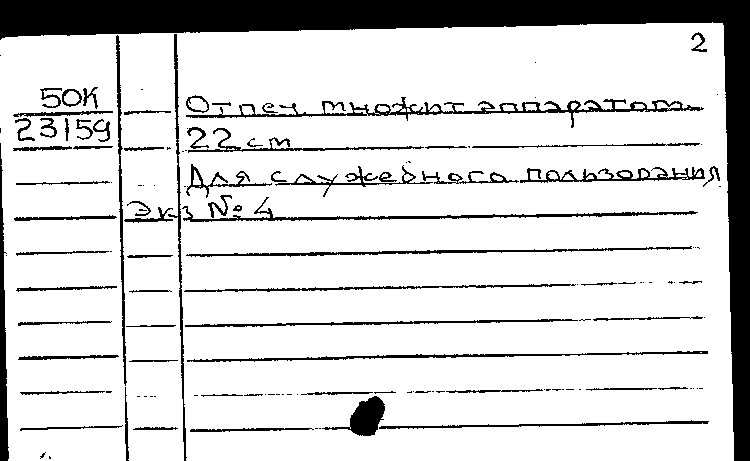 2
50К Отпеч. множит аппаратом.
23159 22 cm
Для служебного пользования
Экз № 4